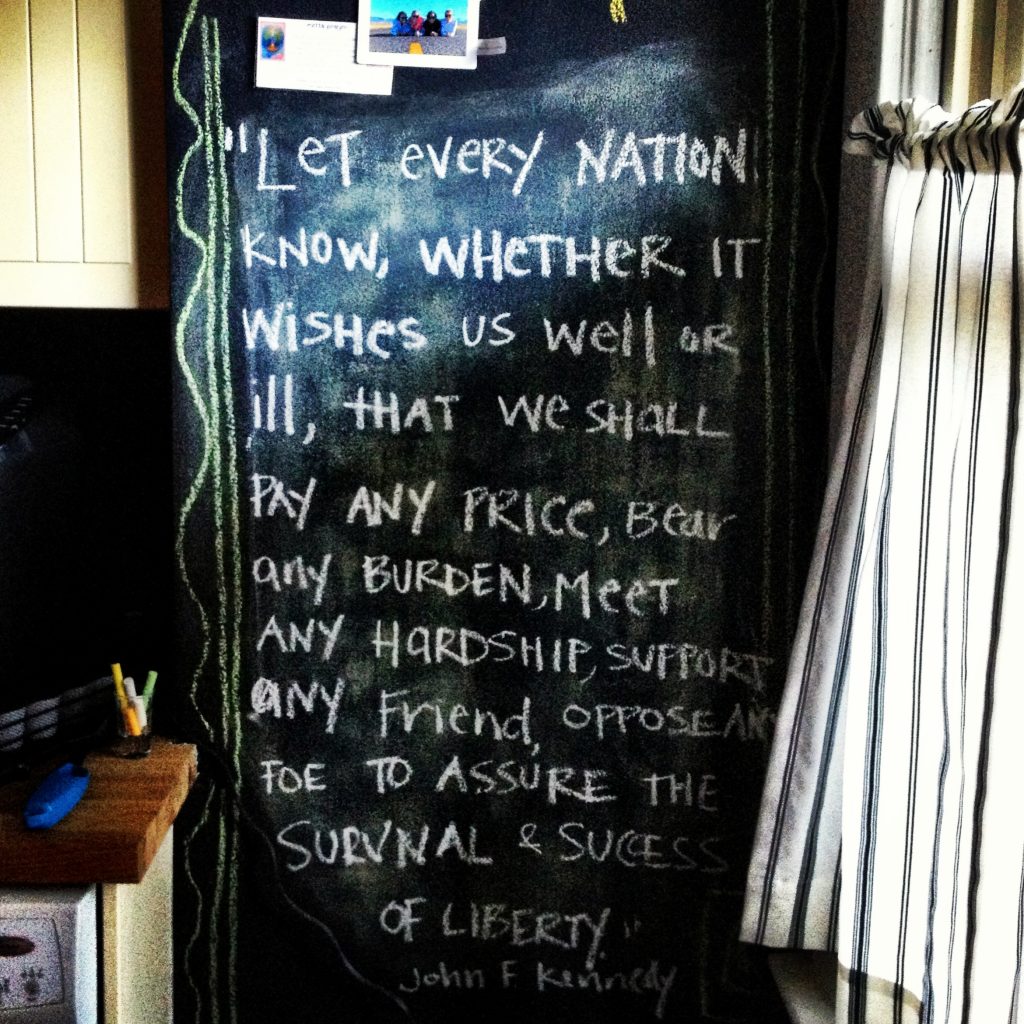 "Let every NATION
KNOW, WHETHER IT
WISHES US Well OR
ill, THAT We SHALL
PAY ANY PRICE, Bear
any BURDEN, Meet
ANY HARDSHIP, SUPPORT
ANY Friend, OPPOSE ANY
FOE TO ASSURE THE
SURVIVAL & SUCESS
OF LIBERTY."
John F. Kennedy